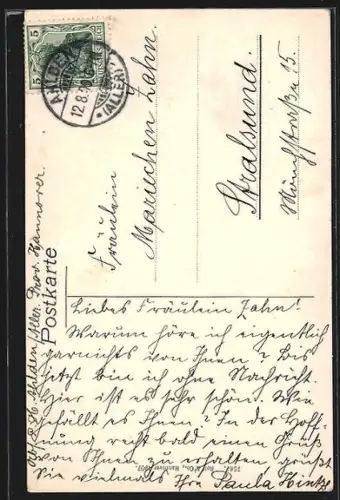 5
5
AHLDEN
12.8.
(ALLER)
Postkarte
Fräulein
Mariechen Zahn.
Stralsund.
Mönchstraße 15.
Ahlden /Aller. Prov. Hannover.
Liebes Fräulein Zahn!
Warum höre ich eigentlich
garnichts von Ihnen? Bis
jetzt bin ich ohne Nachricht.
Hier ist es sehr schön. Wie
gefällt es Ihnen? In der Hoff-
nung recht bald einen Gruß
von Ihnen zu erhalten, grüßt
Sie vielmals Ihre Paula Hintz
& Co., Hannover 1907.